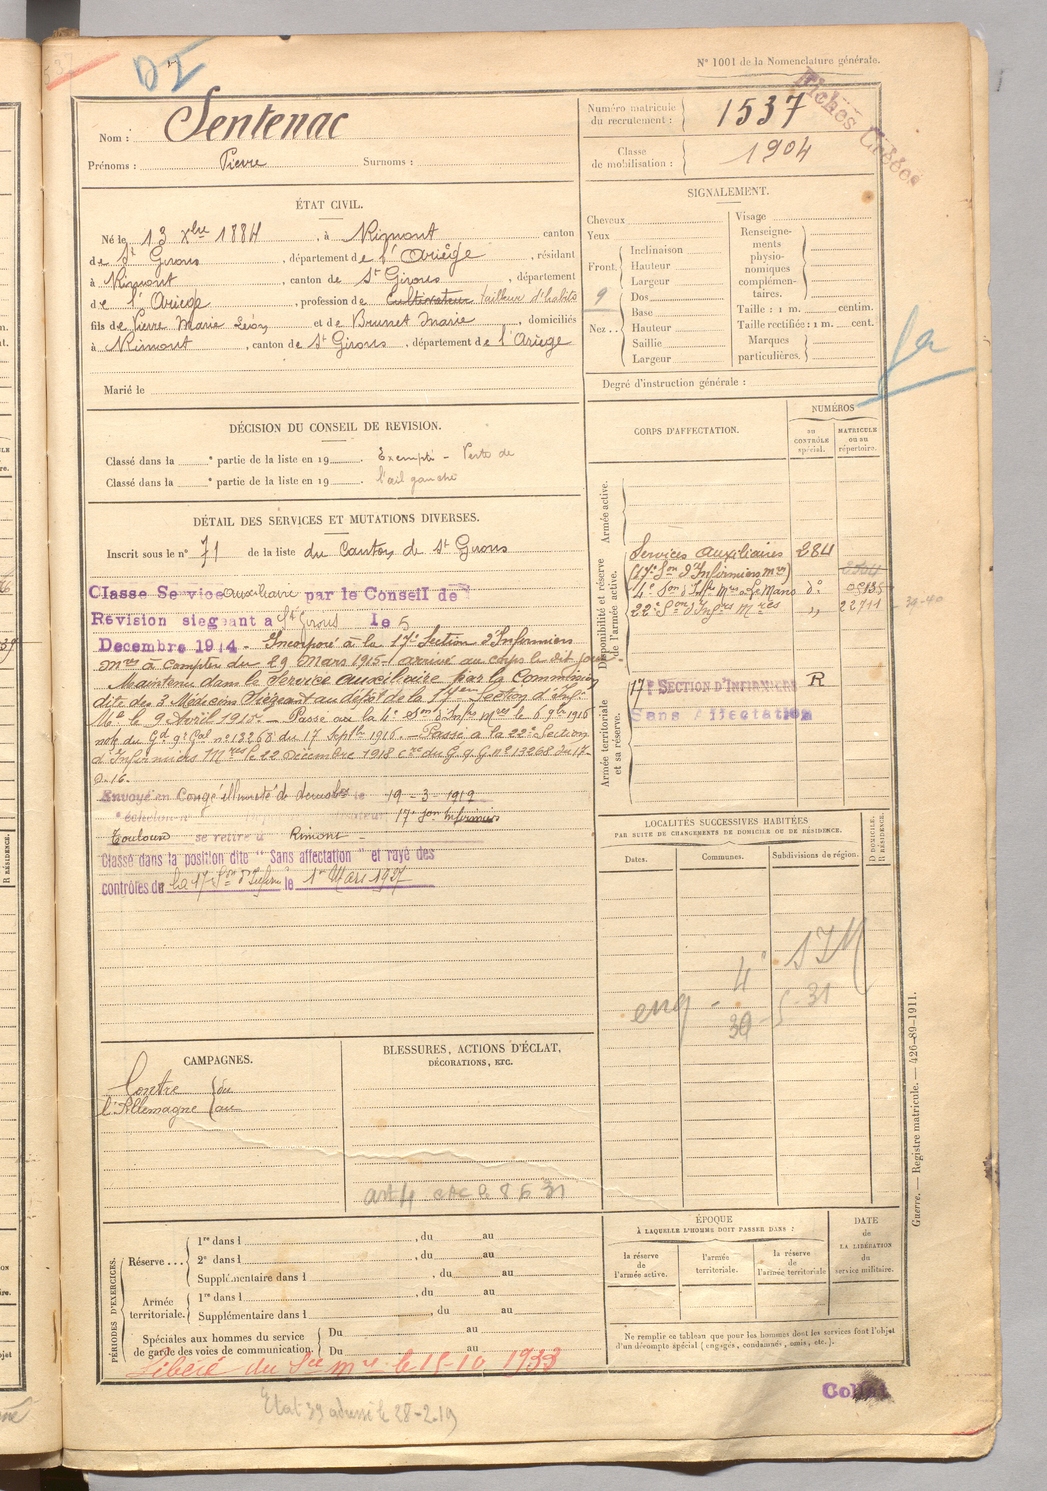 DI
N° 1001 de la Nomenclature générale.
Fiches
Nom : Sentenac
Prénoms : Pierre Surnoms :
Numéro matricule du recrutement : 1537
Classe de mobilisation : 1904
ÉTAT CIVIL.
Né le 13 Xbre 1884, à Rimont canton
de St Girons, département de l'Ariège, résidant
à Rimont, canton de St Girons, département
de l'Ariège, profession de Cultivateur tailleur d'habits
fils de Pierre Marie Léon et de Brunet Marie, domiciliés
à Rimont, canton de St Girons, département de l'Ariège
Marié le
SIGNALEMENT.
Cheveux
Yeux
Front. Inclinaison
Hauteur
Largeur
Nez .. Dos
Base
Hauteur
Saillie
Largeur
9
Visage
Renseigne-
ments
physio-
nomiques
complémen-
taires.
Taille : 1 m. centim.
Taille rectifiée : 1 m. cent.
Marques
particulières.
Degré d'instruction générale :
DÉCISION DU CONSEIL DE REVISION.
Classé dans la e partie de la liste en 19 . Exempté - Perte de
Classé dans la e partie de la liste en 19 . l'œil gauche
DÉTAIL DES SERVICES ET MUTATIONS DIVERSES.
Inscrit sous le n° 71 de la liste du Canton de St Girons
Classe Service auxiliaire par le Conseil de
Révision siegeant a St Girons le 5
Decembre 1914. - Incorporé à la 17e Section d'Infirmiers
Mres à compter du 29 Mars 1915 arrivé au corps le dit jour
Maintenu dans le Service auxiliaire par la Commission
dite des 3 Médecins Siégeant au dépôt de la 17eme Section d'Inf.
Mre le 9 Avril 1915. - Passé au la 4e Son d'Infrs Mres le 6 9bre 1916
note du Gd Qr Gal n° 13268 du 17 Septbre 1916. - Passé à la 22e Section
d'Infirmiers Mres le 22 Décembre 1918 cre du G.Q.G. n° 13268 du 17-
9-16.
Envoyé en Congé illimité de démobon le 19-3-1919
17e Son Infirmiers
Toulouse se retire à Rimont -
Classé dans la position dite " Sans affectation " et rayé des
contrôles de la 17e Son d'Infirm le 1er Mars 1927
CORPS D'AFFECTATION.
NUMÉROS
au contrôle spécial.
matricule ou au répertoire.
Armée active.
Disponibilité et réserve de l'armée active.
Services auxiliaires 284
(17e Son d'Infirmiers Mres)
4e Son d'Infrs Mres Le Mans do 05135
22e Son d'Infrs Mres " 22711
39-40
Armée territoriale et sa réserve.
17e SECTION D'INFIRMIERS R
Sans Affectation
LOCALITÉS SUCCESSIVES HABITÉES
PAR SUITE DE CHANGEMENTS DE DOMICILE OU DE RÉSIDENCE.
Dates. Communes. Subdivisions de région. D DOMICILE. R RÉSIDENCE.
CAMPAGNES.
Contre
l'Allemagne
du
au
BLESSURES, ACTIONS D'ÉCLAT,
DÉCORATIONS, ETC.
PÉRIODES D'EXERCICES.
Réserve ... 1re dans l , du au
2e dans l , du au
Supplémentaire dans l , du au
Armée territoriale. 1re dans l , du au
Supplémentaire dans l , du au
Spéciales aux hommes du service
de garde des voies de communication. Du au
Du au
ÉPOQUE
À LAQUELLE L'HOMME DOIT PASSER DANS :
la réserve de l'armée active.
l'armée territoriale.
la réserve de l'armée territoriale
DATE
de
LA LIBÉRATION
du
service militaire.
Ne remplir ce tableau que pour les hommes dont les services font l'objet
d'un décompte spécial (engagés, condamnés, omis, etc.).
Libéré du Sce mre le 15-10 1933
Etat 39 adressé le 28-2-19
Guerre. — Registre matricule. — 426-89-1911.